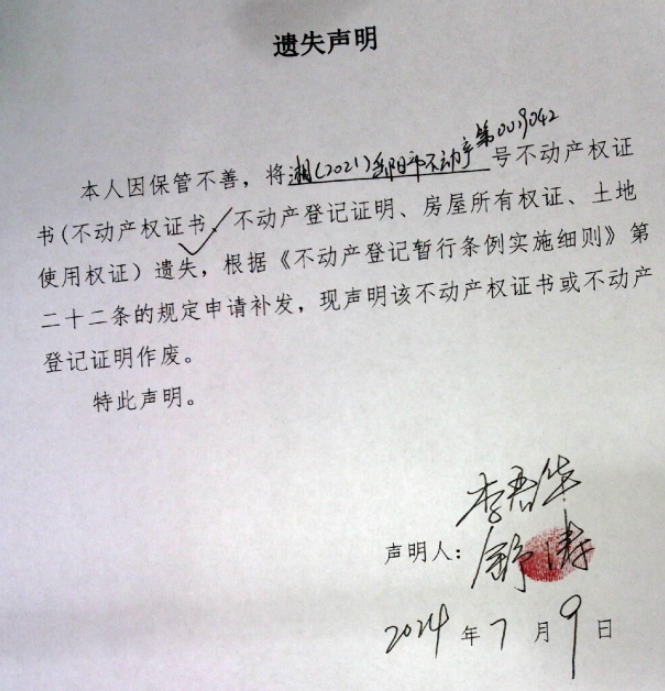 遗失声明
本人因保管不善，将湘(2021)岳阳市不动产第0019042号不动产权证
书(不动产权证书、不动产登记证明、房屋所有权证、土地
使用权证）遗失，根据《不动产登记暂行条例实施细则》第
二十二条的规定申请补发，现声明该不动产权证书或不动产
登记证明作废。
特此声明。
李君华
声明人：舒涛
2024年7月9日